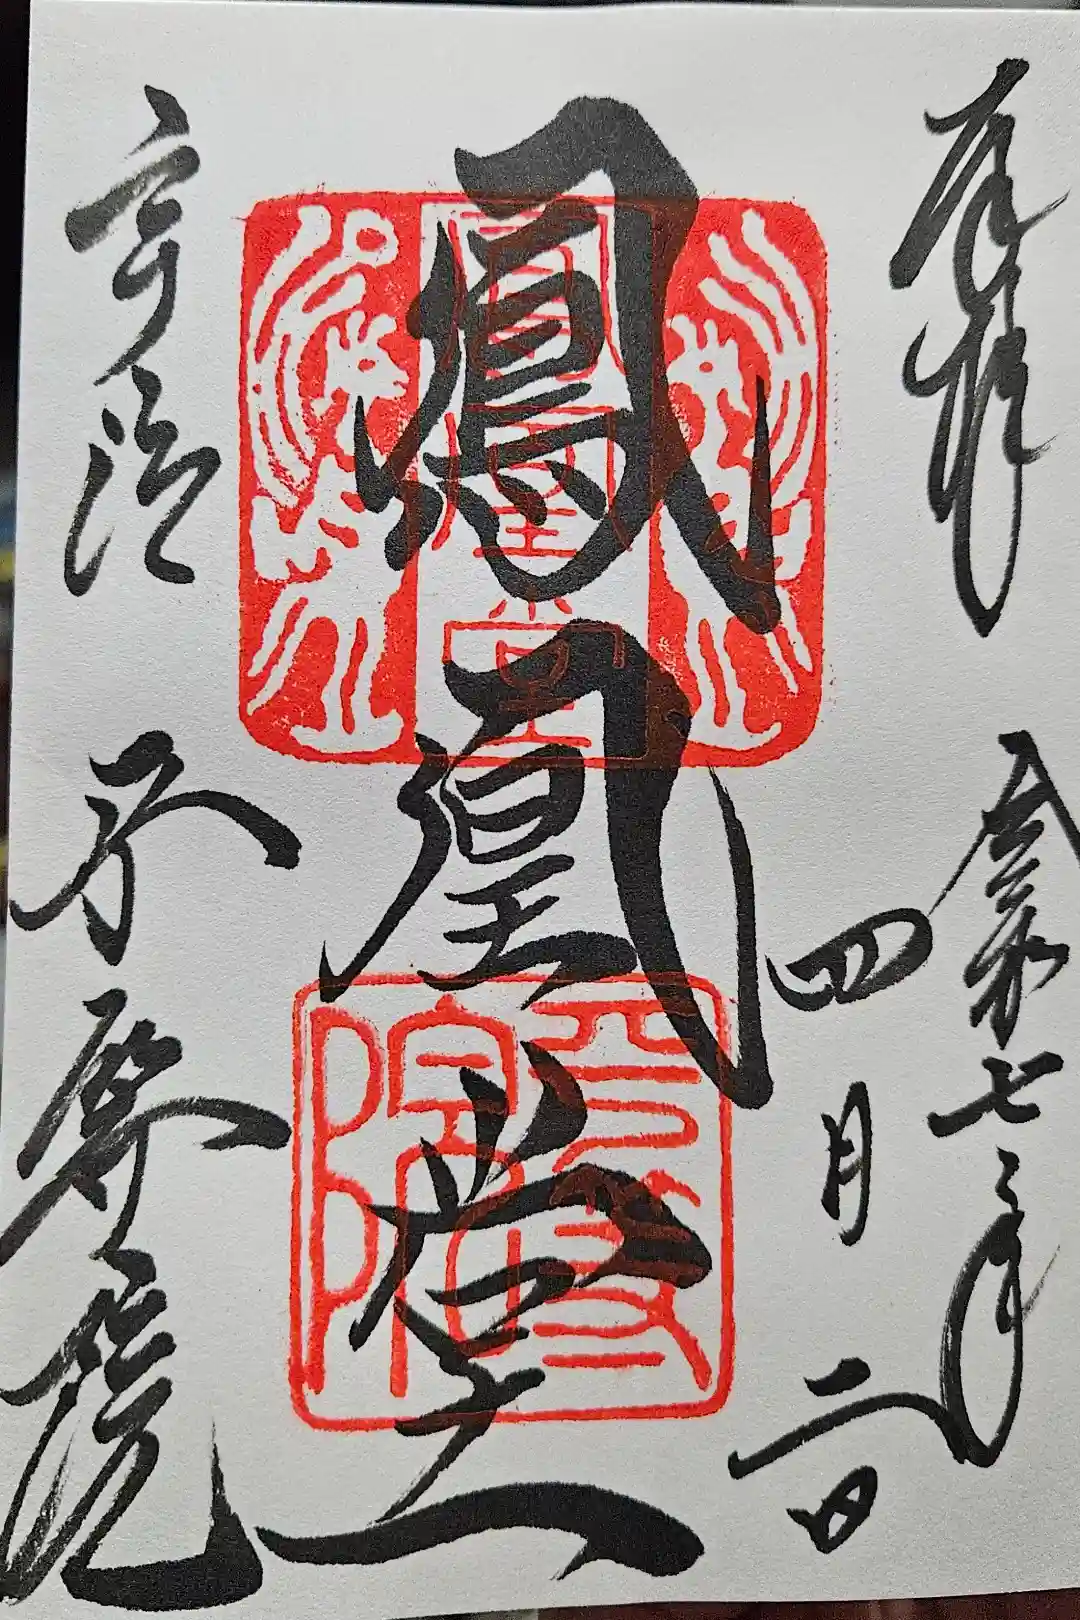 奉拝
令和七年
四月二日
鳳凰堂
宇治
平等院
鳳凰堂
平等院印